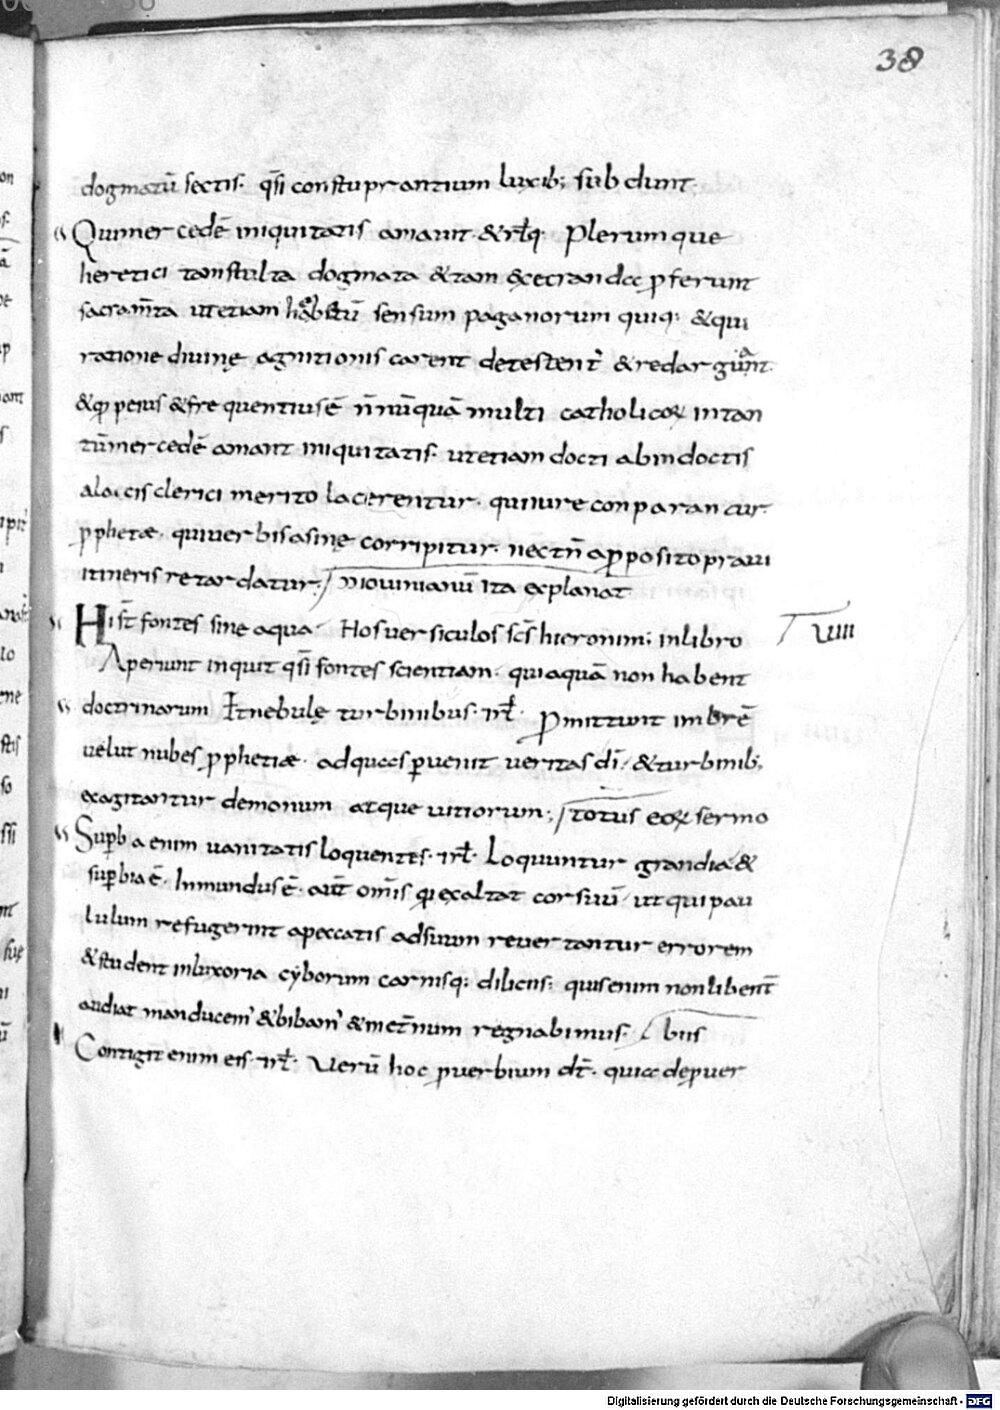 38
dogmatū sectis. q̄si constuprantium luxib; subdunt.
Qui mercedē iniquitatis amavit. & rłq. Plerumque
heretici tam stulta dogmata & tam execranda pferunt
sacram̄ta ut etiam hebetū sensum paganorum quiq; & qui
ratione divinę agnitionis carent detestent̄ & redarguant.
& qd peius & frequentius ē n̄nūquā multi catholicoꝝ in tan
tū mercedē amant iniquitatis. ut etiam docti ab indoctis
a laicis clerici merito lacerentur. qui iure conparantur
pphetae. qui verbis asinę corripitur. nec tn̄ apposito pravi
itineris retardatur; iovinianū ita explanat
Hi sт̄ fontes sine aqua. Hos versiculos sc̄s hieronim; in libro
T viiii
Aperiunt inquit q̄si fontes scientiam. qui aquā non habent
doctrinarum Et nebulę turbinibus. rł. Pmittunt imbrē
velut nubes pphetiae. ad quas pvenit veritas dī. & turbinib;
exagitantur demonum atque vitiorum; totus eoꝝ sermo
Supba enim vanitatis loquentes. rł. Loquuntur grandia &
supbia ē. Inmundus ē. aūt om̄is q exaltat cor suū. ut qui pau
lulum refugerint a peccatis ad suum revertantur errorem
& student in luxoria cyborum carnisq; diliciis; quis enim non libent̄
audiat manducem' & bibam' & inet̄num regnabimus. bus
Contigit enim eis. rł. Verū hoc pverbium dt̄. quia depver
Digitalisierung gefördert durch die Deutsche Forschungsgemeinschaft - DFG